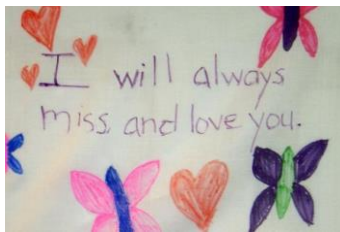 I will always
miss and love you.